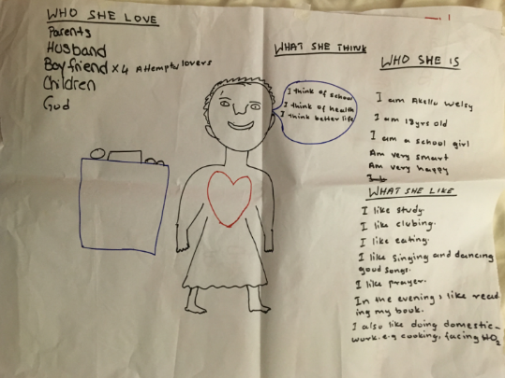 WHO SHE LOVE
Parents
Husband
Boyfriend x 4 Attempts lovers
Children
God
WHAT SHE THINK
I think of school
I think of health
I think better life
WHO SHE IS
I am Akello Welsy
I am 18yrs old
I am a school girl
Am very smart
Am very happy
WHAT SHE LIKE
I like study.
I like clubing.
I like eating.
I like singing and dancing
good songs.
I like prayer.
In the evening, like read
ing my book.
I also like doing domestic-
work. e.g cooking,